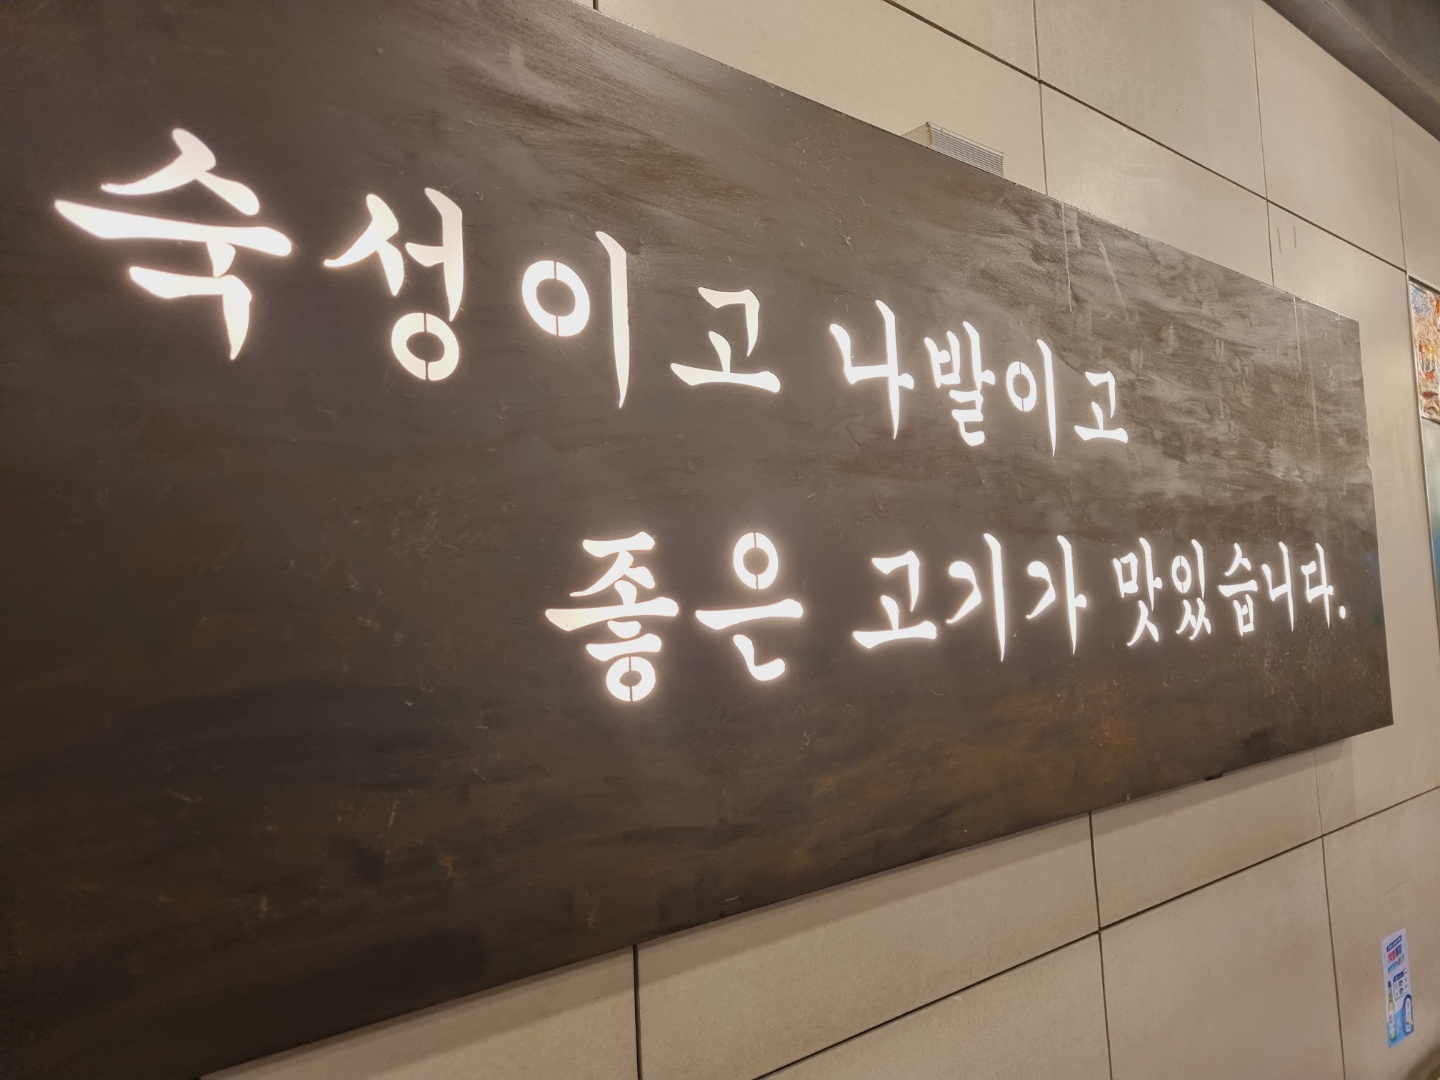 숙성이고 나발이고
좋은 고기가 맛있습니다.